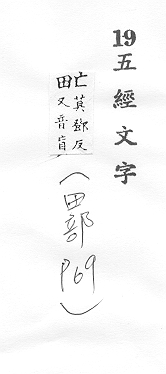 19五經文字
亡莫鄧反
田又音盲
（田部P69）